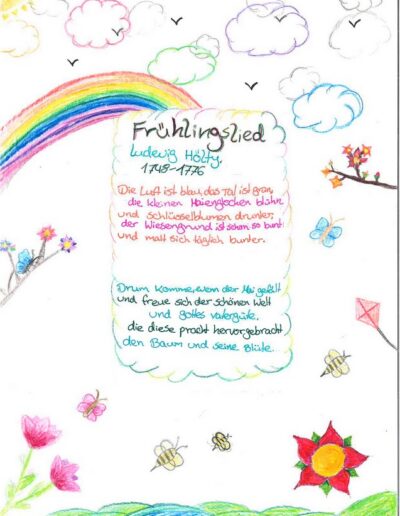 Frühlingslied
Ludewig Hölty.
1748-1776
Die Luft ist blau, das Tal ist grün,
die kleinen Maienglocken blühn
und schlüsselblumen drunter;
der Wiesengrund ist schon so bunt
und malt sich täglich bunter.
Drum komme, wem der Mai gefällt
und freue sich der schönen Welt
und gottes vatergüte,
die diese pracht hervorgebracht
den Baum und seine Blüte.